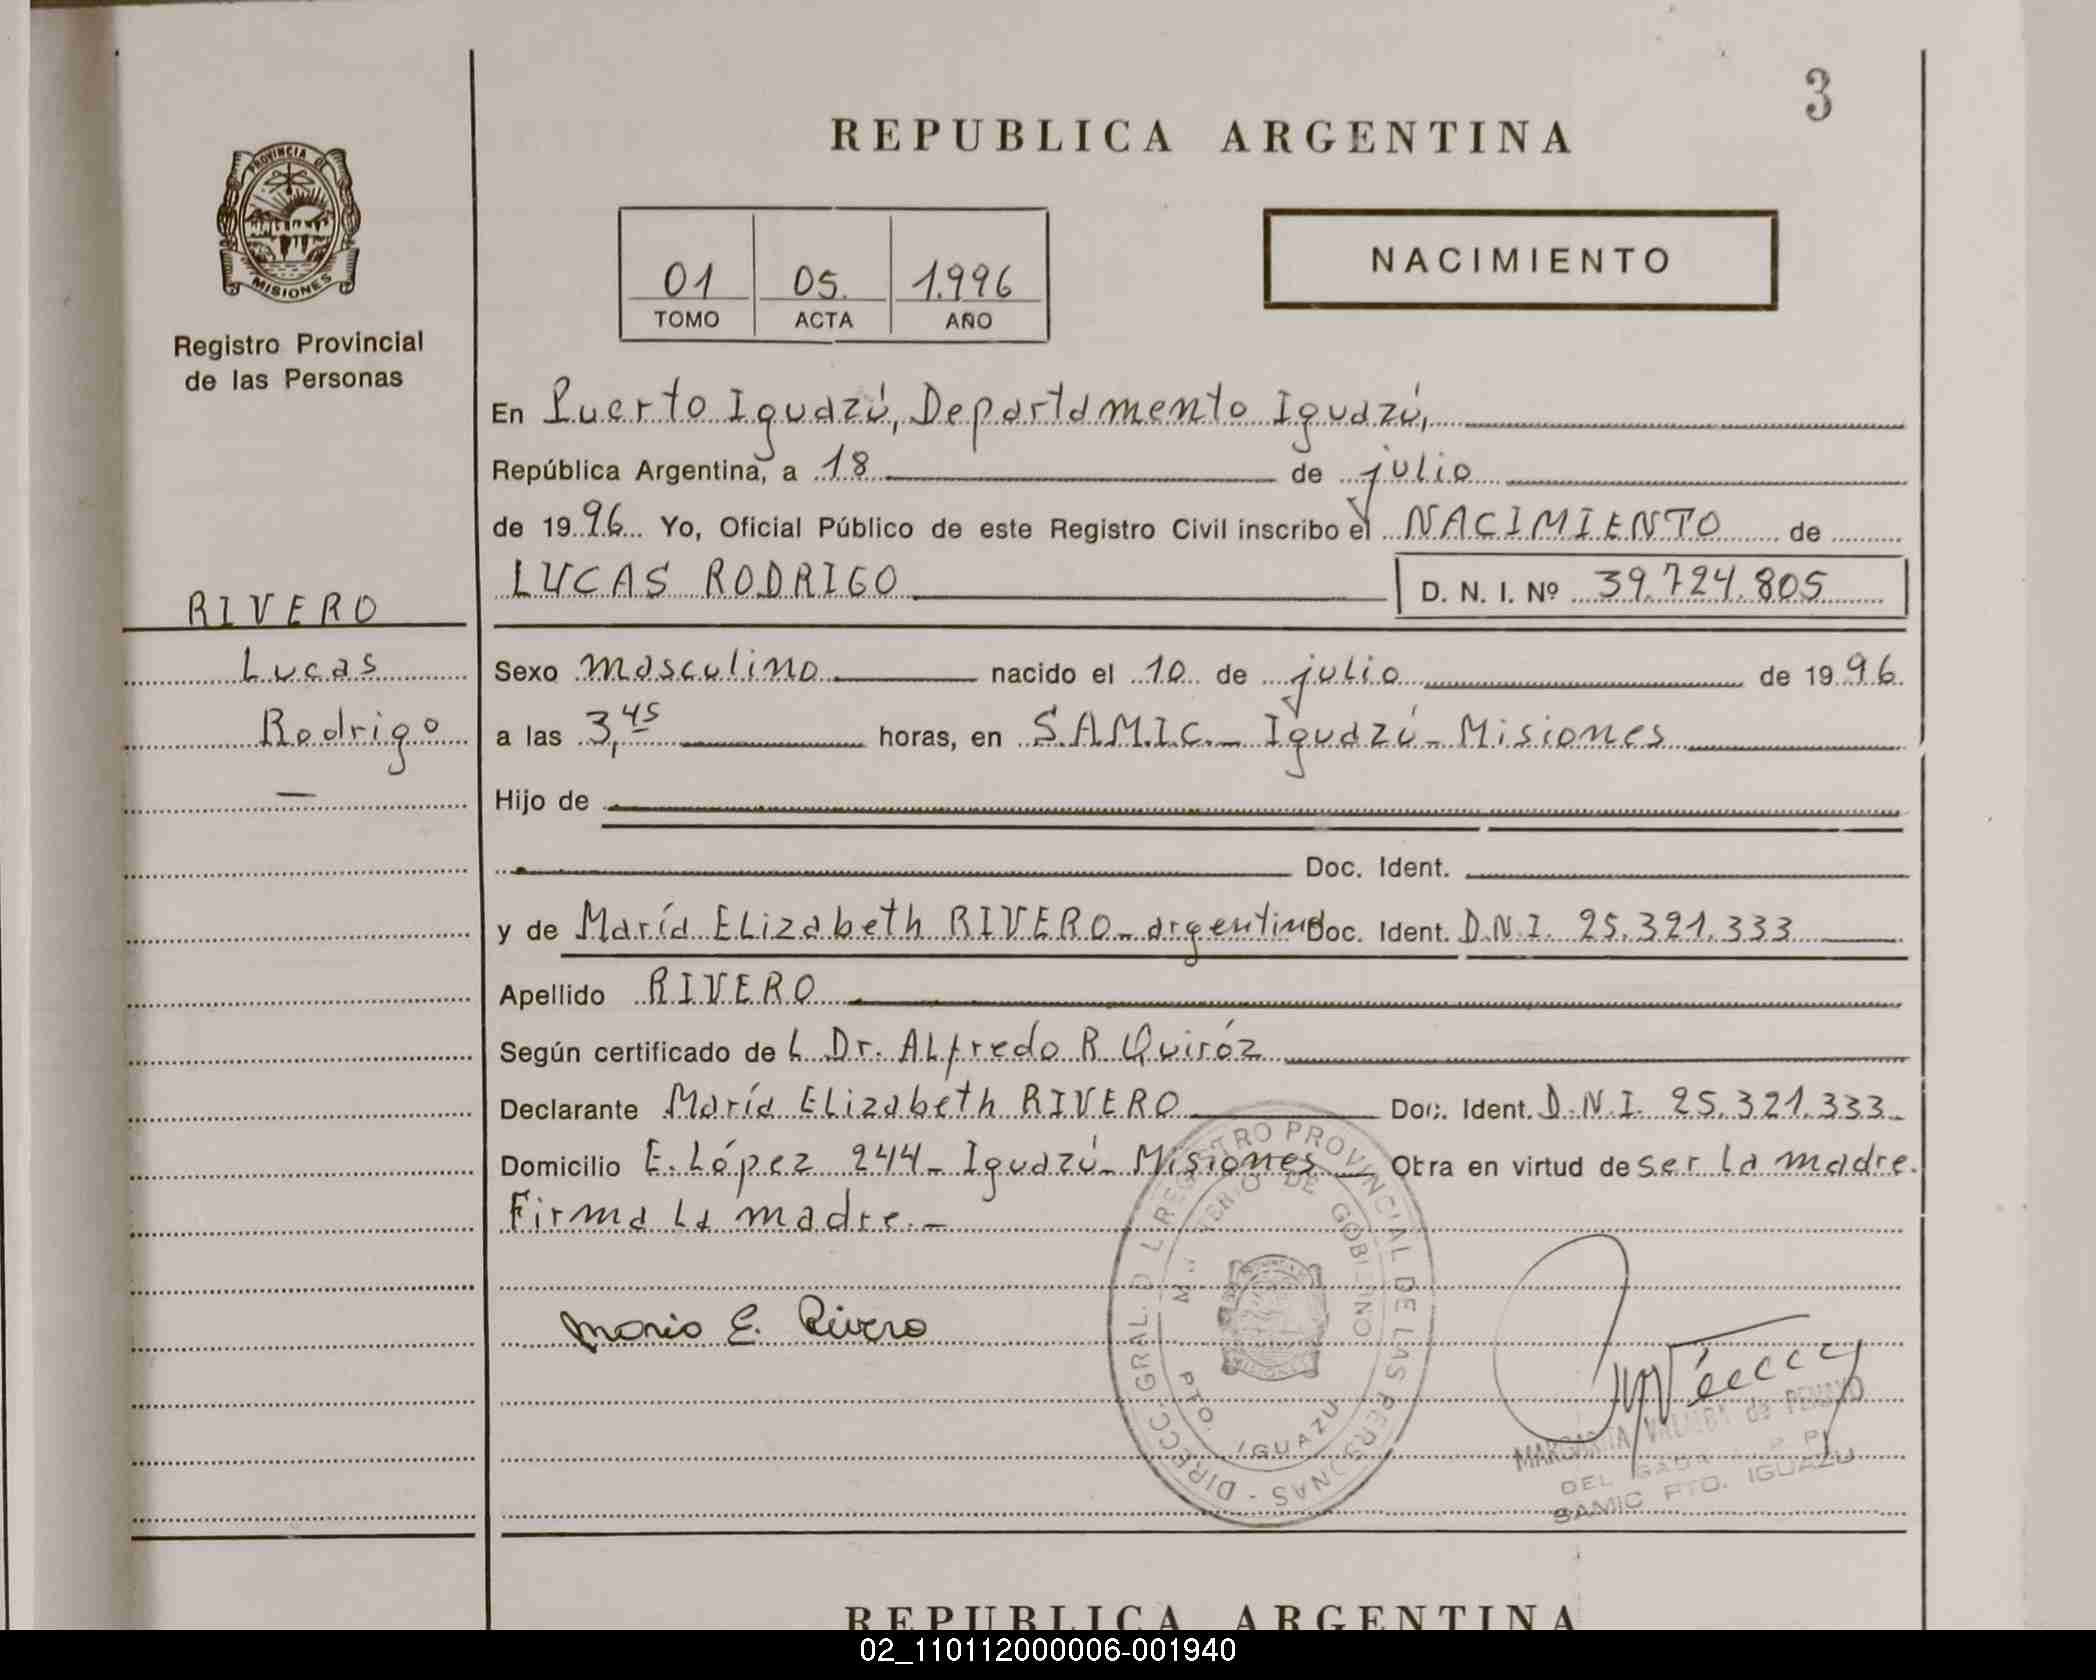 3
REPUBLICA ARGENTINA
PROVINCIA DE
MISIONES
Registro Provincial
de las Personas
01 05. 1.996
TOMO ACTA AÑO
NACIMIENTO
En Puerto Iguazú, Departamento Iguazú,
República Argentina, a 18 de julio
de 1996 Yo, Oficial Público de este Registro Civil inscribo el NACIMIENTO de
LUCAS RODRIGO D. N. I. Nº 39.724.805
RIVERO
Lucas
Rodrigo
—
Sexo masculino nacido el 10 de julio de 1996.
a las 3,45 horas, en S.A.M.I.C.- Iguazú- Misiones
Hijo de
Doc. Ident.
y de María ELizabeth RIVERO- argentina Doc. Ident. D.N.I. 25.321.333
Apellido RIVERO
Según certificado de L Dr. ALfredo R Quiróz
Declarante María ELizabeth RIVERO Doc. Ident. D.N.I. 25.321.333
Domicilio E. López 244- Iguazú- Misiones Obra en virtud de ser la madre.
Firma La madre.-
Maria E. Rivero
DIRECC. GRAL. D L REGISTRO PROVINCIAL DE LAS PERSONAS -
MINISTERIO DE GOBIERNO
PTO. IGUAZU
MARGARITA de
SAMIC PTO. IGUAZU
REPUBLICA ARGENTINA
02_110112000006-001940